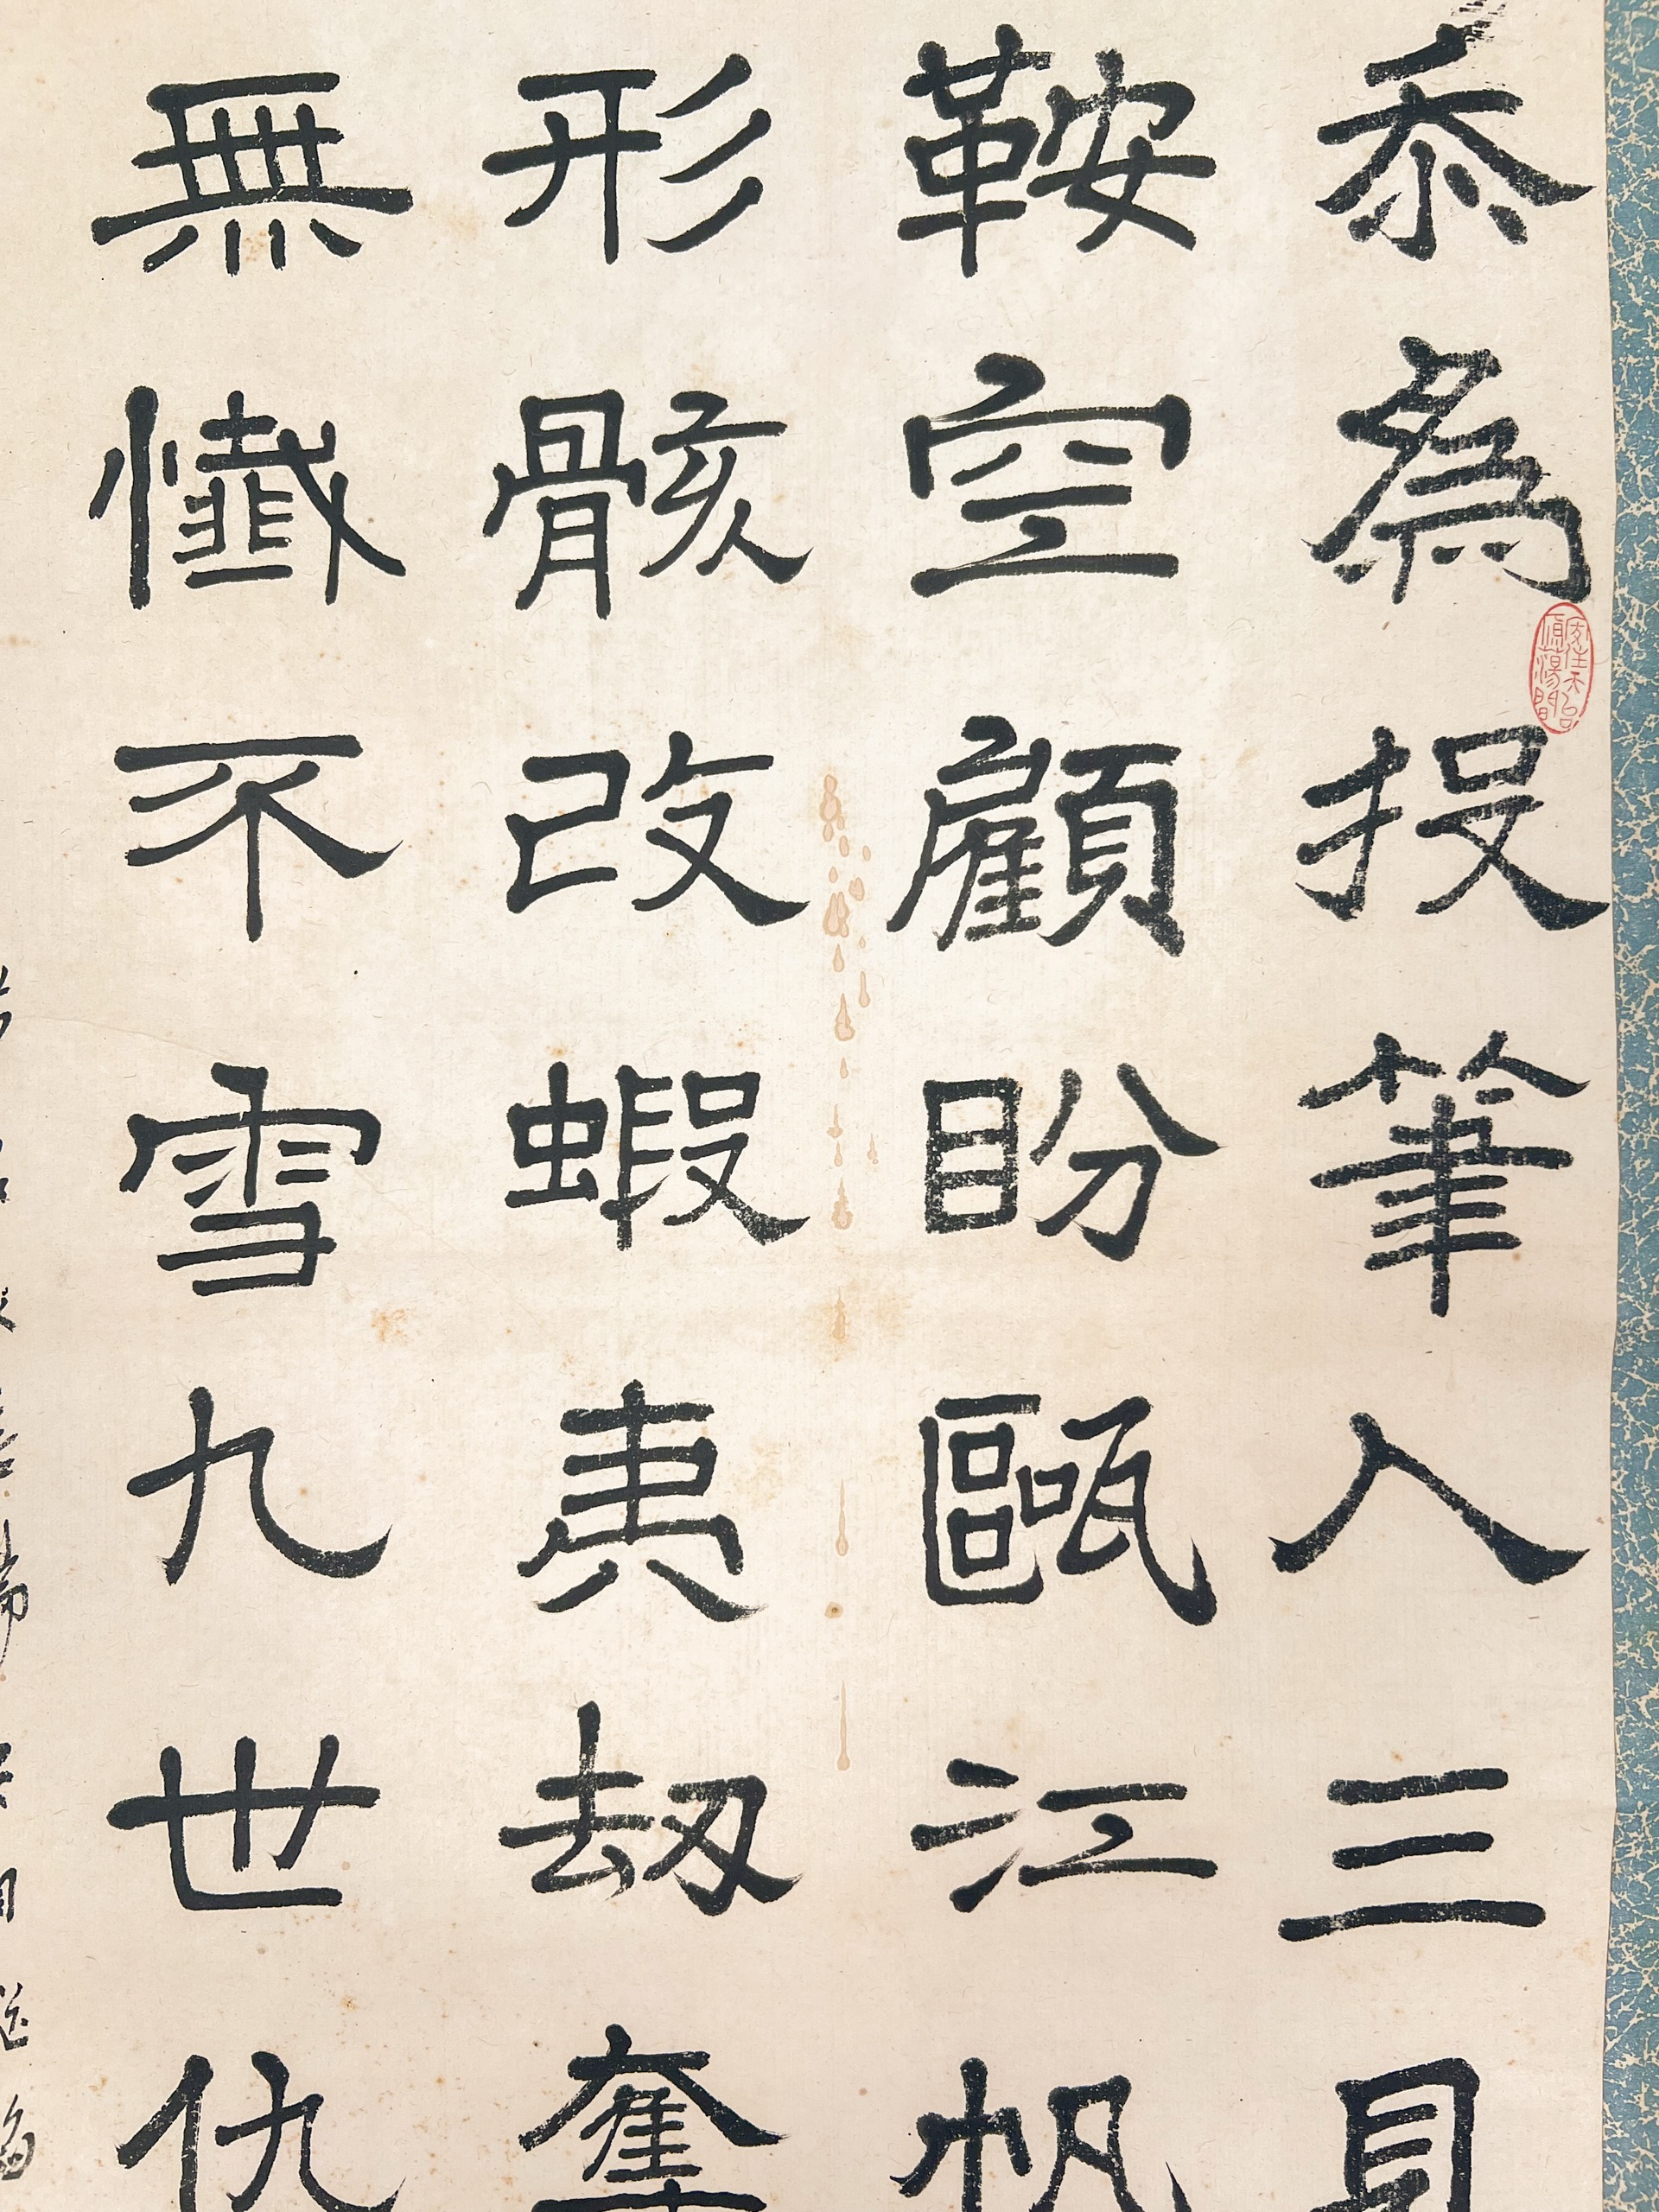 忝為投筆人三見
鞍空顧盼甌江帆
形骸改蝦夷劫奪
無懺不雪九世仇